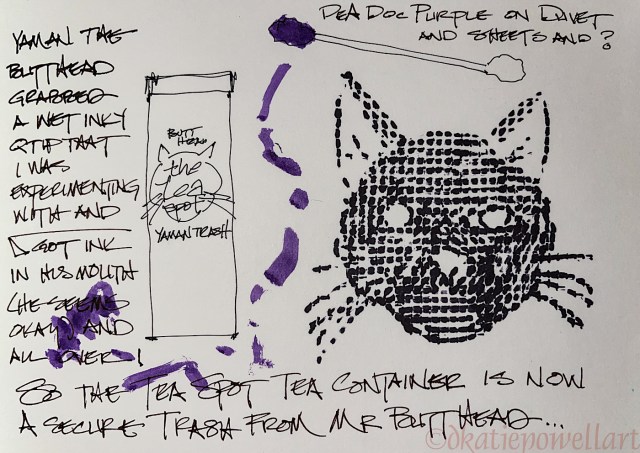 YAMAN THE
BUTTHEAD
GRABBED
A WET INKY
QTIP THAT
I WAS
EXPERIMENTING
WITH AND
GOT INK
IN HIS MOUTH
(HE SEEMS
OKAY) AND
ALL OVER
DEA DOC PURPLE ON DUVET
AND SHEETS AND?
BUTT
HEAD
the
tea
spot
YAMAN TRASH
SO THE TEA SPOT TEA CONTAINER IS NOW
A SECURE TRASH FROM MR BUTTHEAD...
©dkatiepowellart